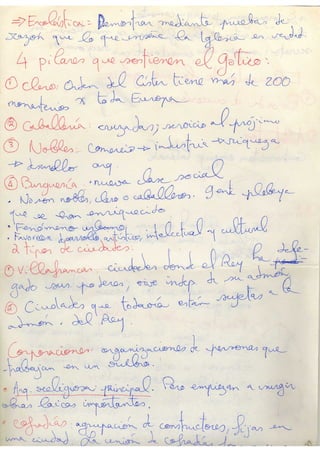 ⇒ Escolástica: Demostrar mediante pruebas de
razón que lo que enseñe la Iglesia en verdad.
4 pilares que sostienen el Gótico:
① Clero: Orden del Císter tiene más de 200
monasterios x toda Europa
② Caballería: cruzadas; servicio al prójimo
③ Nobles: Comercio → industria → riqueza
→ desarrollo arq
④ Burguesía: nueva clase social
· No son nobles, clero o caballeros. Gente plebeya
que se han enriquecido
· Fenómeno urbano
· Favorece desarrollo artístico, intelectual y cultural
2 tipos de ciudades:
① Villafrancas: ciudades donde el Rey ha dele-
gado sus poderes, vive indep de su admón
② Ciudades que todavía están sujetas a la
admón. del Rey.
Corporaciones: organizaciones de personas que
trabajan en un pueblo.
· Arq. religiosa principal. Pero empiezan a surgir
obras laicas importantes.
· Cofradías: agrupación de constructores, fijas en
una ciudad. La unión de cofradías